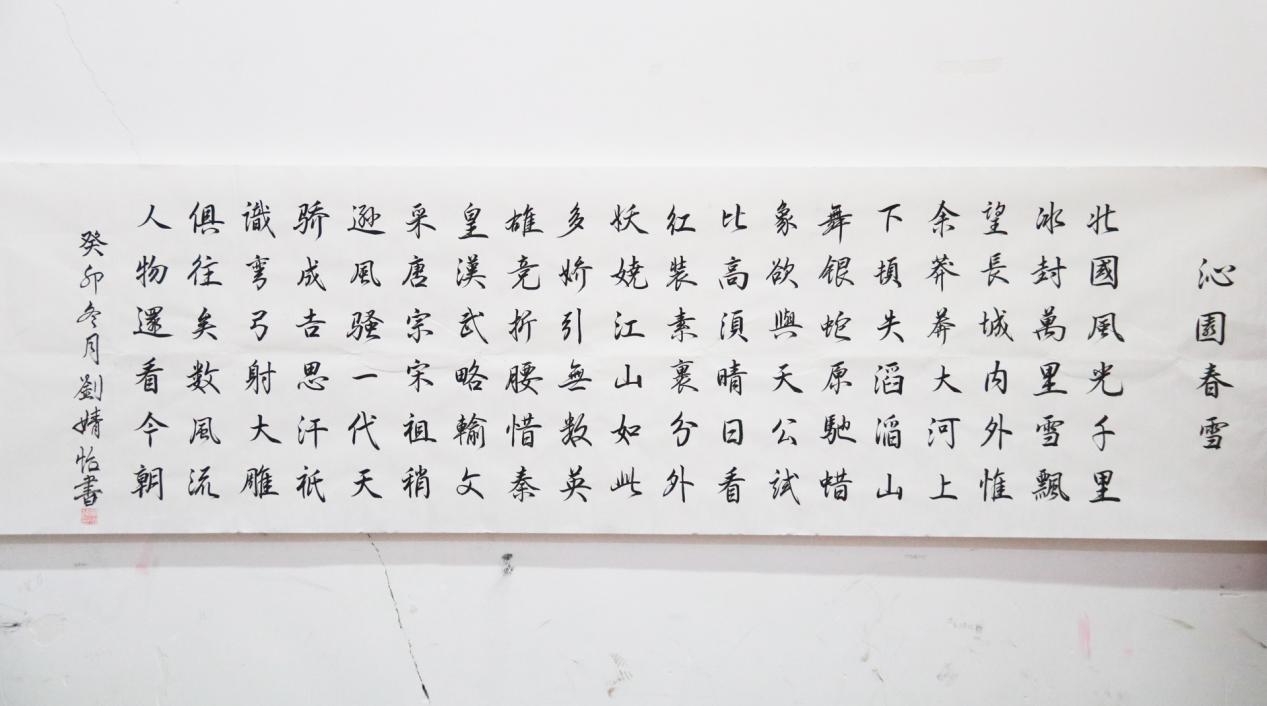 沁園春雪
北國風光千里
冰封萬里雪飄
望長城内外惟
余莽莽大河上
下頓失滔滔山
舞银蛇原馳蜡
象欲與天公試
比高湏晴日看
红装素裹分外
妖娆江山如此
多娇引無数英
雄竞折腰惜秦
皇漢武略輸文
采唐宗宋祖稍
逊風骚一代天
骄成吉思汗衹
識弯弓射大雕
俱往矣数風流
人物還看今朝
癸卯冬月劉婧怡書